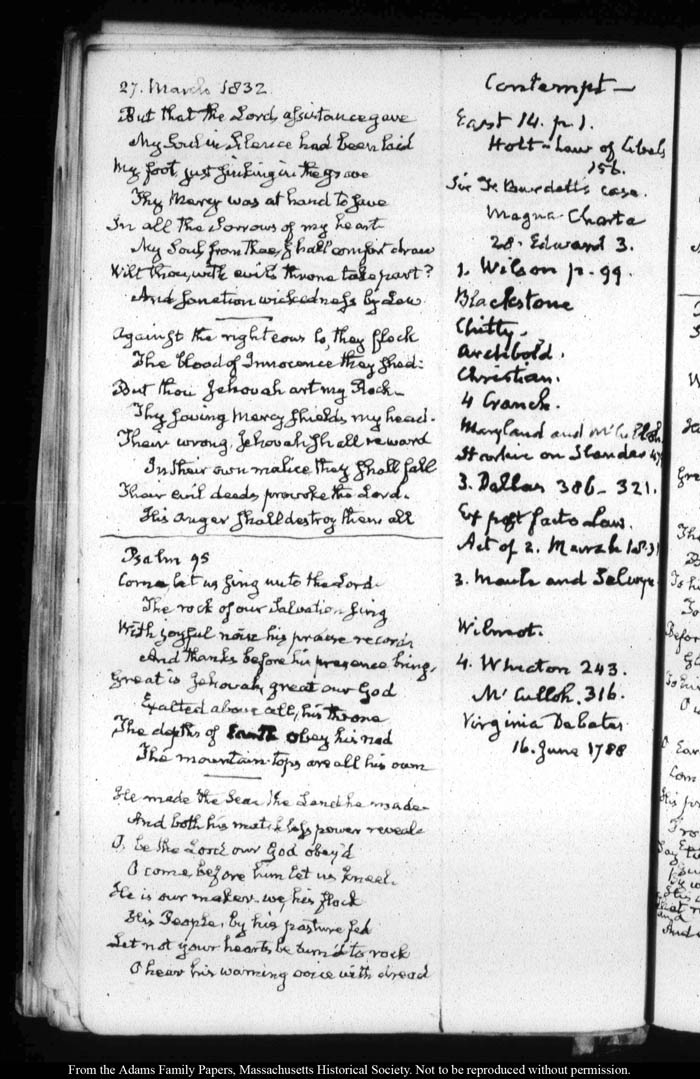 27. March 1832
But that the Lord's assistance gave
My Soul in Silence had been laid
My foot just sinking in the grave
Thy Mercy was at hand to save
In all the Sorrows of my heart
My Soul, from thee, shall comfort draw
Wilt thou, with evil's throne take part?
And sanction wickedness by Law.
Against the righteous lo, they flock
The blood of Innocence they shed:
But thou Jehovah art my Rock—
Thy saving Mercy shields my head.
Their wrong, Jehovah shall reward
In their own malice they shall fall
Their evil deeds, provoke the Lord.
His anger shall destroy them all
Psalm 95
Come, let us sing unto the Lord
The rock of our Salvation sing
With joyful noise his praise record
And thanks before his presence bring,
Great is Jehovah, great our God
Exalted above all, his throne
The depths of Earth obey his nod
The mountain-tops are all his own
He made the Sea, the Land he made
And both his matchless power reveal
O, be the Lord our God obey'd
O come, before him let us kneel.
He is our maker. we, his flock
His People, by his pasture fed
Let not your hearts be turn'd to rock
O hear his warning voice with dread
Contempt—
East 14. p. 1.
Holt—Law of Libels
156.
Sir Fr. Burdett's case.
Magna Charta
28. Edward 3.
1. Wilson p. 99.
Blackstone
Chitty.
Archbold.
Christian.
4 Cranch.
Maryland and
Starkie on Slander
3. Dallas 386— 321.
Ex post facto Law.
Act of 2. March
3. Maule and Selwyn
Wilmot.
4. Wheaton 243.
McCulloh. 316.
Virginia Debates
16. June 1788
From the Adams Family Papers, Massachusetts Historical Society. Not to be reproduced without permission.